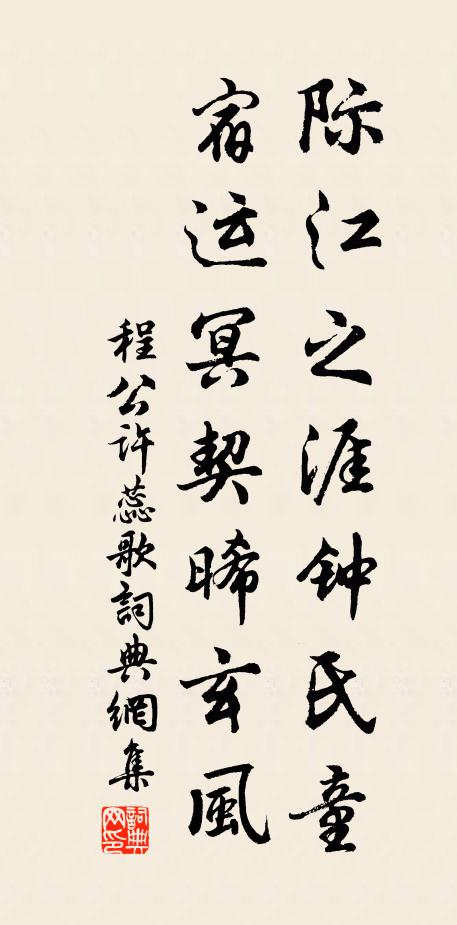 际江之涯钟氏童
宿运冥契晞玄風
程公许蕊歌詞典網集
詞典網印